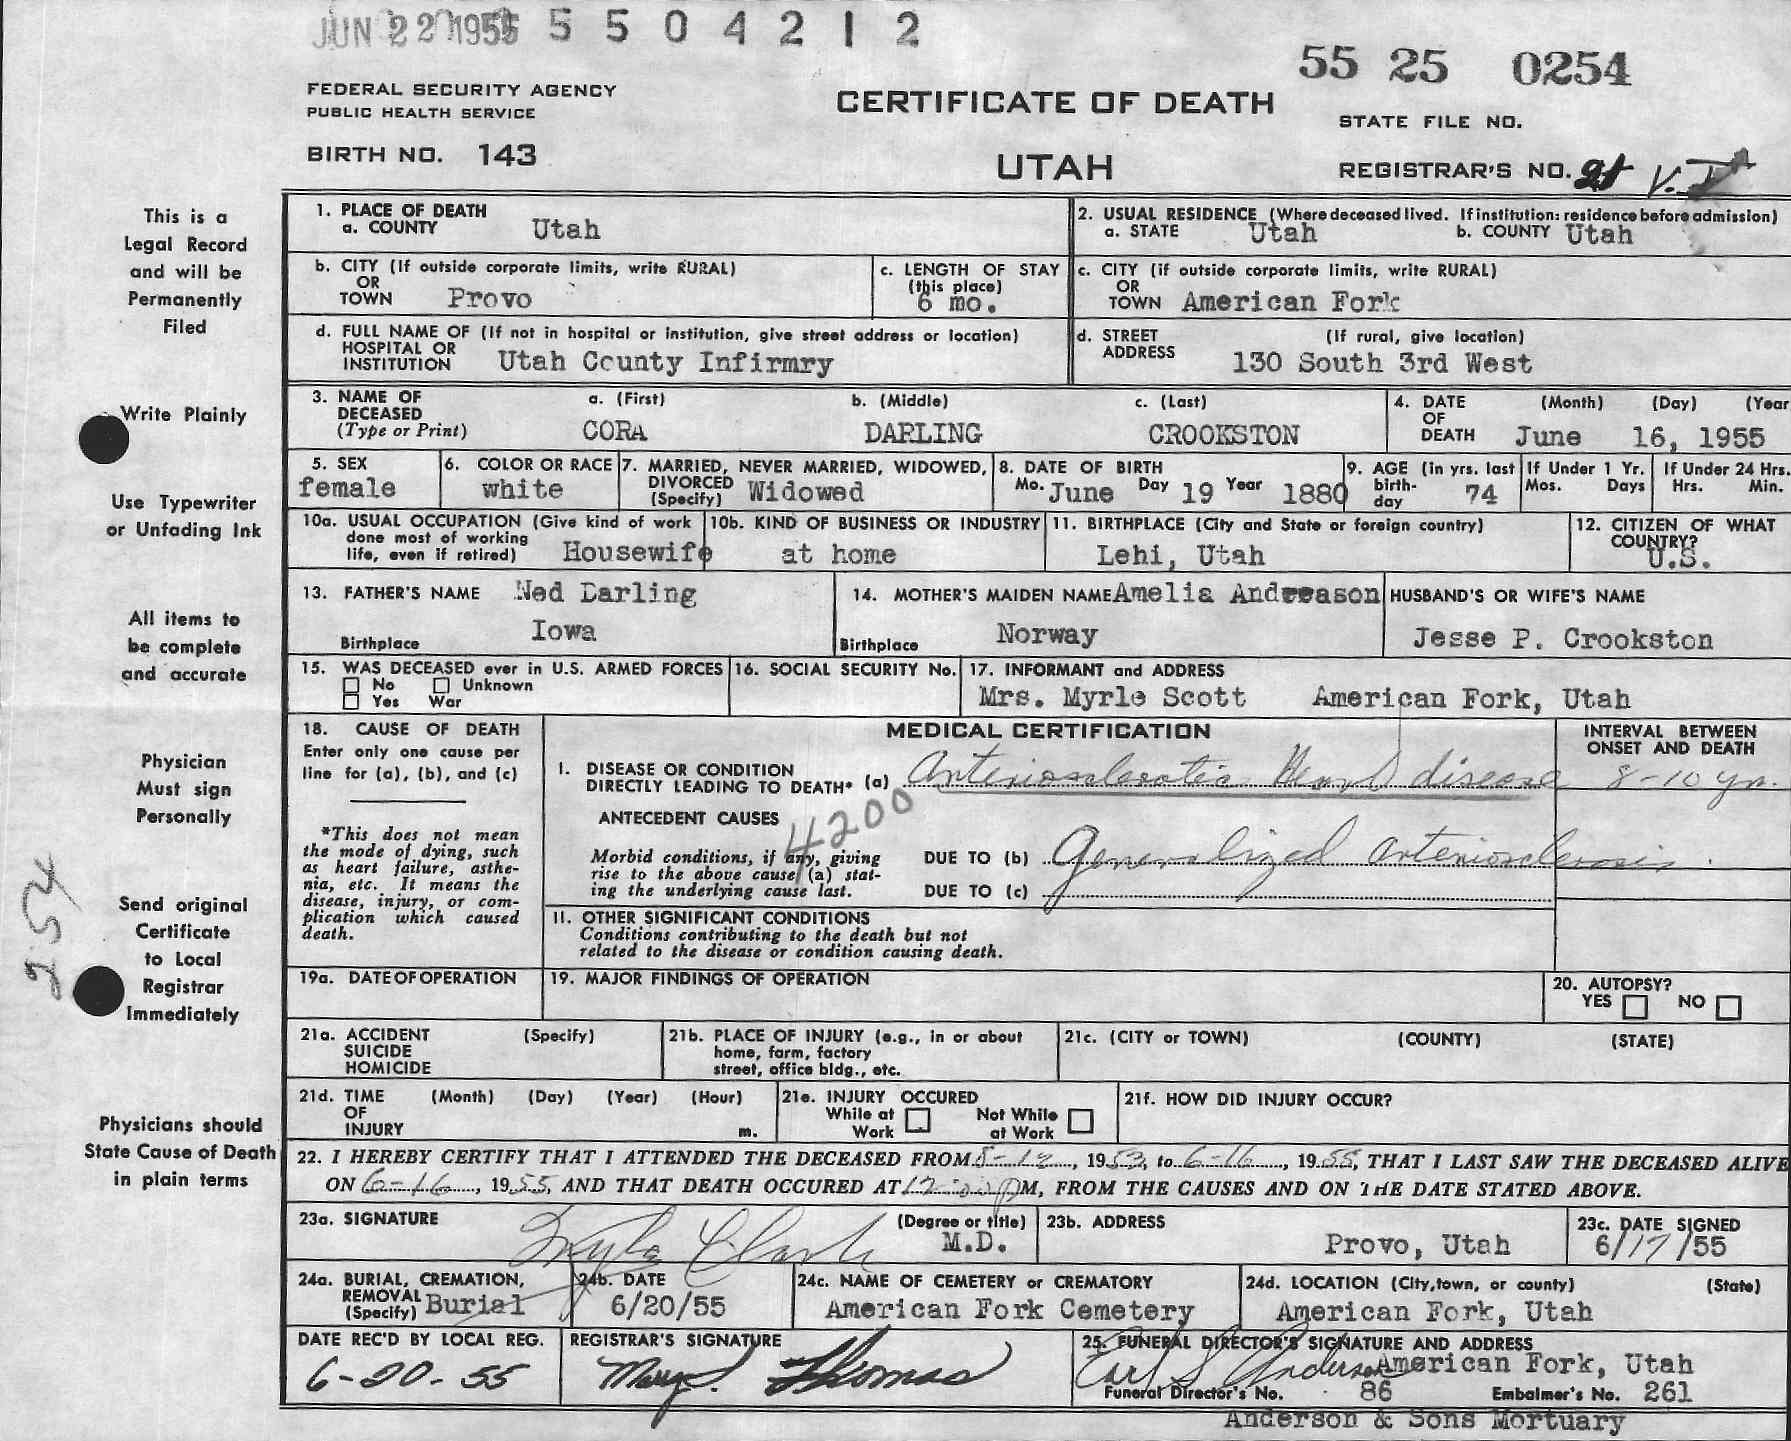 JUN 22 1955 5 5 0 4 2 1 2
55 25 0254
FEDERAL SECURITY AGENCY
PUBLIC HEALTH SERVICE
CERTIFICATE OF DEATH
STATE FILE NO.
BIRTH NO. 143
UTAH
REGISTRAR'S NO.
This is a
Legal Record
and will be
Permanently
Filed
Write Plainly
Use Typewriter
or Unfading Ink
All items to
be complete
and accurate
Physician
Must sign
Personally
254
Send original
Certificate
to Local
Registrar
Immediately
Physicians should
State Cause of Death
in plain terms
1. PLACE OF DEATH
a. COUNTY Utah
2. USUAL RESIDENCE (Where deceased lived. If institution: residence before admission)
a. STATE Utah b. COUNTY Utah
b. CITY (If outside corporate limits, write RURAL)
OR
TOWN Provo
c. LENGTH OF STAY
(this place)
6 mo.
c. CITY (if outside corporate limits, write RURAL)
OR
TOWN American Fork
d. FULL NAME OF (If not in hospital or institution, give street address or location)
HOSPITAL OR
INSTITUTION Utah County Infirmry
d. STREET (If rural, give location)
ADDRESS 130 South 3rd West
3. NAME OF a. (First) b. (Middle) c. (Last)
DECEASED
(Type or Print) CORA DARLING CROOKSTON
4. DATE (Month) (Day) (Year
OF
DEATH June 16, 1955
5. SEX
female
6. COLOR OR RACE
white
7. MARRIED, NEVER MARRIED, WIDOWED,
DIVORCED
(Specify) Widowed
8. DATE OF BIRTH
Mo. June Day 19 Year 1880
9. AGE (in yrs. last
birth-
day 74
If Under 1 Yr.
Mos. Days
If Under 24 Hrs.
Hrs. Min.
10a. USUAL OCCUPATION (Give kind of work
done most of working
life, even if retired) Housewife
10b. KIND OF BUSINESS OR INDUSTRY
at home
11. BIRTHPLACE (City and State or foreign country)
Lehi, Utah
12. CITIZEN OF WHAT
COUNTRY?
U.S.
13. FATHER'S NAME Ned Darling
Birthplace Iowa
14. MOTHER'S MAIDEN NAME Amelia Andreason
Birthplace Norway
HUSBAND'S OR WIFE'S NAME
Jesse P. Crookston
15. WAS DECEASED ever in U.S. ARMED FORCES
No Unknown
Yes War
16. SOCIAL SECURITY No.
17. INFORMANT and ADDRESS
Mrs. Myrle Scott American Fork, Utah
18. CAUSE OF DEATH
Enter only one cause per
line for (a), (b), and (c)
*This does not mean
the mode of dying, such
as heart failure, asthe-
nia, etc. It means the
disease, injury, or com-
plication which caused
death.
MEDICAL CERTIFICATION
INTERVAL BETWEEN
ONSET AND DEATH
I. DISEASE OR CONDITION
DIRECTLY LEADING TO DEATH* (a) Arteriosclerotic Heart disease 8-10 yr.
ANTECEDENT CAUSES 4200
Morbid conditions, if any, giving
rise to the above cause (a) stat-
ing the underlying cause last.
DUE TO (b) Generalized arteriosclerosis.
DUE TO (c)
II. OTHER SIGNIFICANT CONDITIONS
Conditions contributing to the death but not
related to the disease or condition causing death.
19a. DATE OF OPERATION
19. MAJOR FINDINGS OF OPERATION
20. AUTOPSY?
YES NO
21a. ACCIDENT (Specify)
SUICIDE
HOMICIDE
21b. PLACE OF INJURY (e.g., in or about
home, farm, factory
street, office bldg., etc.
21c. (CITY or TOWN) (COUNTY) (STATE)
21d. TIME (Month) (Day) (Year) (Hour)
OF
INJURY m.
21e. INJURY OCCURED
While at Not While
Work at Work
21f. HOW DID INJURY OCCUR?
22. I HEREBY CERTIFY THAT I ATTENDED THE DECEASED FROM 8-12, 1953, to 6-16, 1955, THAT I LAST SAW THE DECEASED ALIVE
ON 6-16, 1955, AND THAT DEATH OCCURED AT 12: PM, FROM THE CAUSES AND ON THE DATE STATED ABOVE.
23a. SIGNATURE (Degree or title)
Clark M.D.
23b. ADDRESS
Provo, Utah
23c. DATE SIGNED
6/17/55
24a. BURIAL, CREMATION,
REMOVAL
(Specify) Burial
24b. DATE
6/20/55
24c. NAME OF CEMETERY or CREMATORY
American Fork Cemetery
24d. LOCATION (City, town, or county) (State)
American Fork, Utah
DATE REC'D BY LOCAL REG.
6-20-55
REGISTRAR'S SIGNATURE
Mary J. Thomas
25. FUNERAL DIRECTOR'S SIGNATURE AND ADDRESS
Earl S Anderson American Fork, Utah
Funeral Director's No. 86 Embalmer's No. 261
Anderson & Sons Mortuary